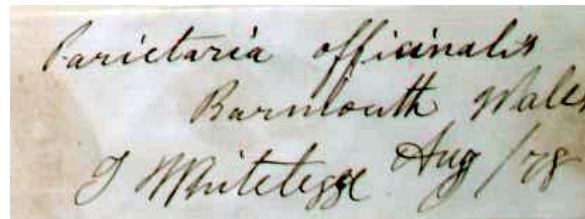 Parietaria officinalis
Barmouth Wales
T Whitelegge Aug /78